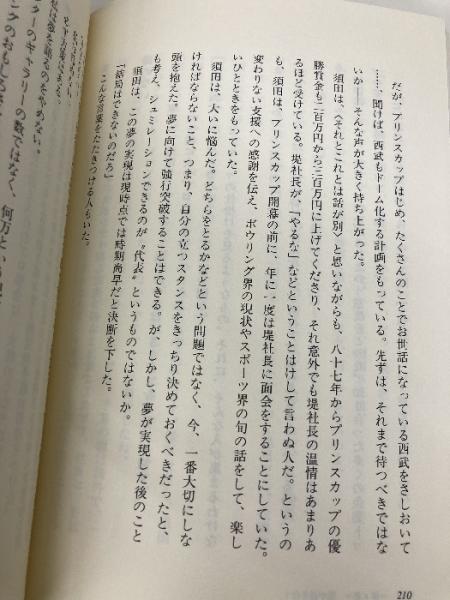 だが、プリンスカップはじめ、たくさんのことでお世話になっている西武をさしおいて
……、聞けば、西武もドーム化する計画をもっている。先ずは、それまで待つべきではな
いか――そんな声が大きく持ち上がった。
須田は、〈それとこれとは話が別〉と思いながらも、八十七年からプリンスカップの優
勝賞金も二百万円から三百万円に上げてくださり、それ意外でも堤社長の温情はあまりあ
るほど受けている。堤社長が、「やるな」などということはけして言わぬ人だ。というの
も、須田は、プリンスカップ開幕の前に、年に一度は堤社長に面会をすることにしていた。
変わりない支援への感謝を伝え、ボウリング界の現状やスポーツ界の旬の話をして、楽し
いひとときをもっていた。
須田は、大いに悩んだ。どちらをとるかなどという問題ではなく、今、一番大切にしな
ければならないこと、つまり、自分の立つスタンスをきっちり決めておくべきだったと、
頭を抱えた。夢に向けて強行突破することはできる。が、しかし、夢が実現した後のこと
も考え、シュミレーションできるのが〝代表〟というものではないか。
須田は、この夢の実現は現時点では時期尚早だと決断を下した。
「結局はできないのだろ」
こんな言葉をたたきつける人もいた。
私は夢を語るのをやめない。
ギャラリーの数ではなく、何万という
210